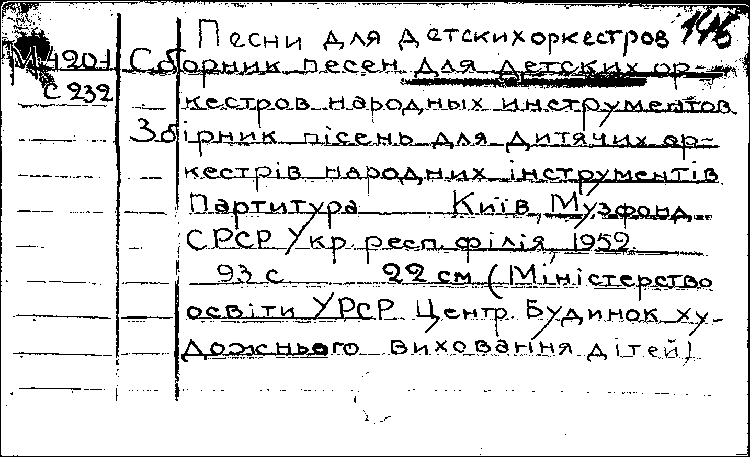 Песни для детских оркестров 146
М 1201 Сборник песен для детских ор-
С 232 кестров народных инструментов
Збірник пісень для дитячих ор-
кестрів народних інструментів
Партитура Київ, Музфонд
СРСР Укр. респ. філія, 1952.
93 с 22 см (Міністерство
освіти УРСР. Центр. Будинок ху-
дожнього виховання дітей)